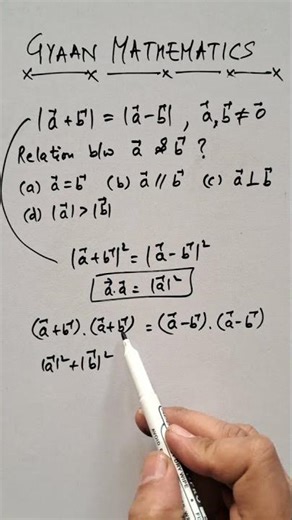 GYAAN MATHEMATICS
|a⃗ + b⃗| = |a⃗ - b⃗| , a⃗, b⃗ ≠ 0⃗
Relation b/w a⃗ & b⃗ ?
(a) a⃗ = b⃗ (b) a⃗ // b⃗ (c) a⃗ ⊥ b⃗
(d) |a⃗| > |b⃗|
|a⃗ + b⃗|² = |a⃗ - b⃗|²
a⃗ . a⃗ = |a⃗|²
(a⃗ + b⃗) . (a⃗ + b⃗) = (a⃗ - b⃗) . (a⃗ - b⃗)
|a⃗|² + |b⃗|²